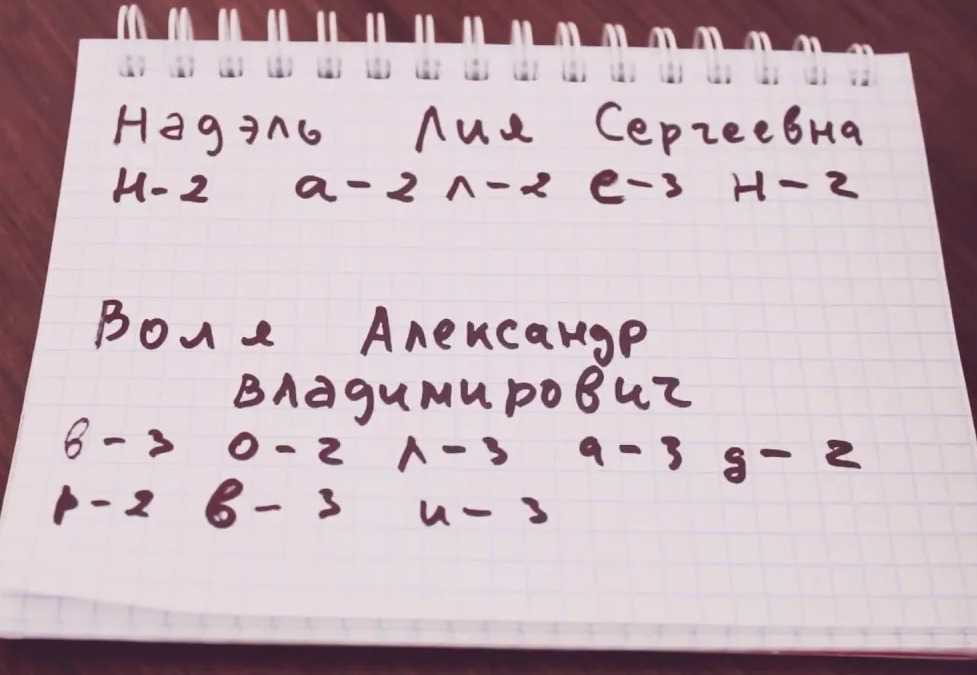 Надэль Лия Сергеевна
Н-2 а-2 л-2 е-3 н-2
Воля Александр
Владимирович
в-3 о-2 л-3 а-3 д-2
р-2 в-3 и-3